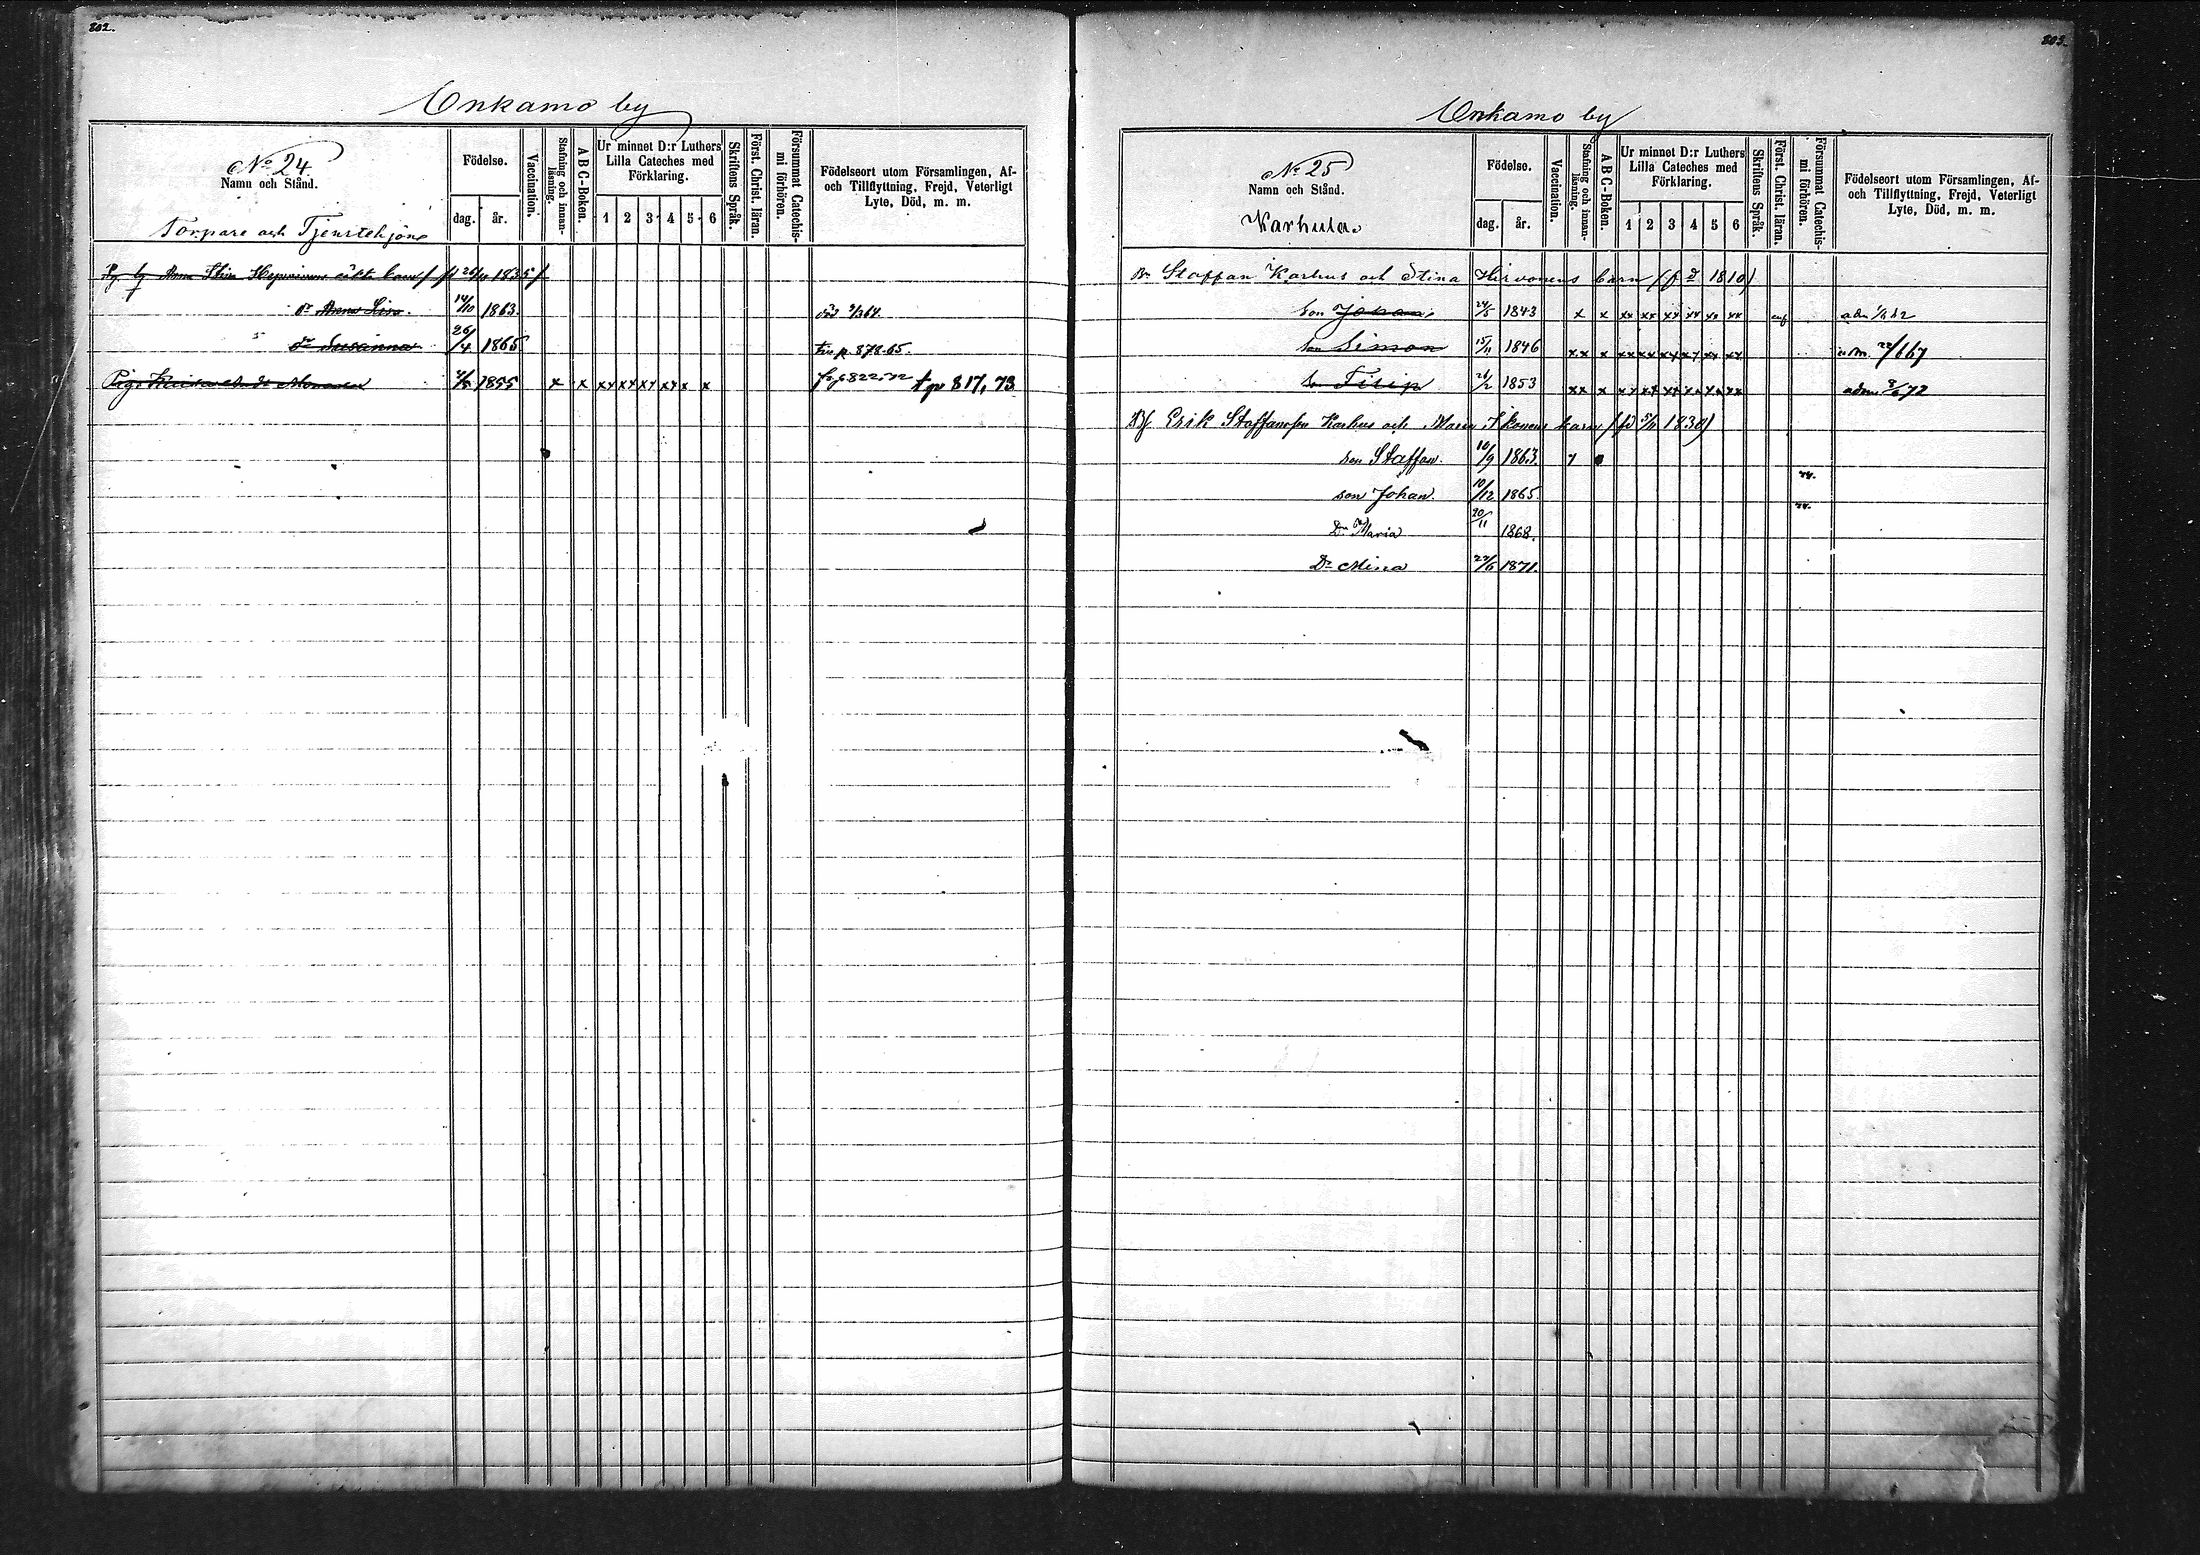 802.
Onkamo by
No 24.
Namn och Stånd.
Torpare och Tjenstehjon
Födelse.
dag. år.
Vaccination.
Stafning och innanläsning.
A B C-Boken.
Ur minnet D:r Luthers Lilla Cateches med Förklaring.
1 2 3 4 5 6
Skriftens Språk.
Först. Christ. läran.
Försummat Catechismi förhören.
Födelseort utom Församlingen, Af- och Tillflyttning, Frejd, Veterligt Lyte, Död, m. m.
Anna Stina barn 1835
dr Anna Lisa. 14/10 1863. död
dr Susanna 26/4 1865 p. 878.65.
Pig. 1855 x x xx xx xx xx x x 817, 73
803.
Onkamo by
No 25
Namn och Stånd.
Karhula.
Födelse.
dag. år.
Vaccination.
Stafning och innanläsning.
A B C-Boken.
Ur minnet D:r Luthers Lilla Cateches med Förklaring.
1 2 3 4 5 6
Skriftens Språk.
Först. Christ. läran.
Försummat Catechismi förhören.
Födelseort utom Församlingen, Af- och Tillflyttning, Frejd, Veterligt Lyte, Död, m. m.
Staffan Karhus och Stina Hirvonens barn (f d 1810)
son Johan 24/5 1843 x x xx xx xx xx xx xx
son Simon 15/11 1846 xx x xx xx xx xx xx xx
Filip 26/2 1853 xx x xx xx xx xx xx xx
Erik Staffansson Karhus och Maria Ikonens barn (fd 5/11 1830)
son Staffan. 10/9 1863.
son Johan. 10/12 1865. 74.
Dr Maria 20/11 1868. 74.
Dr Mina 22/6 1871.